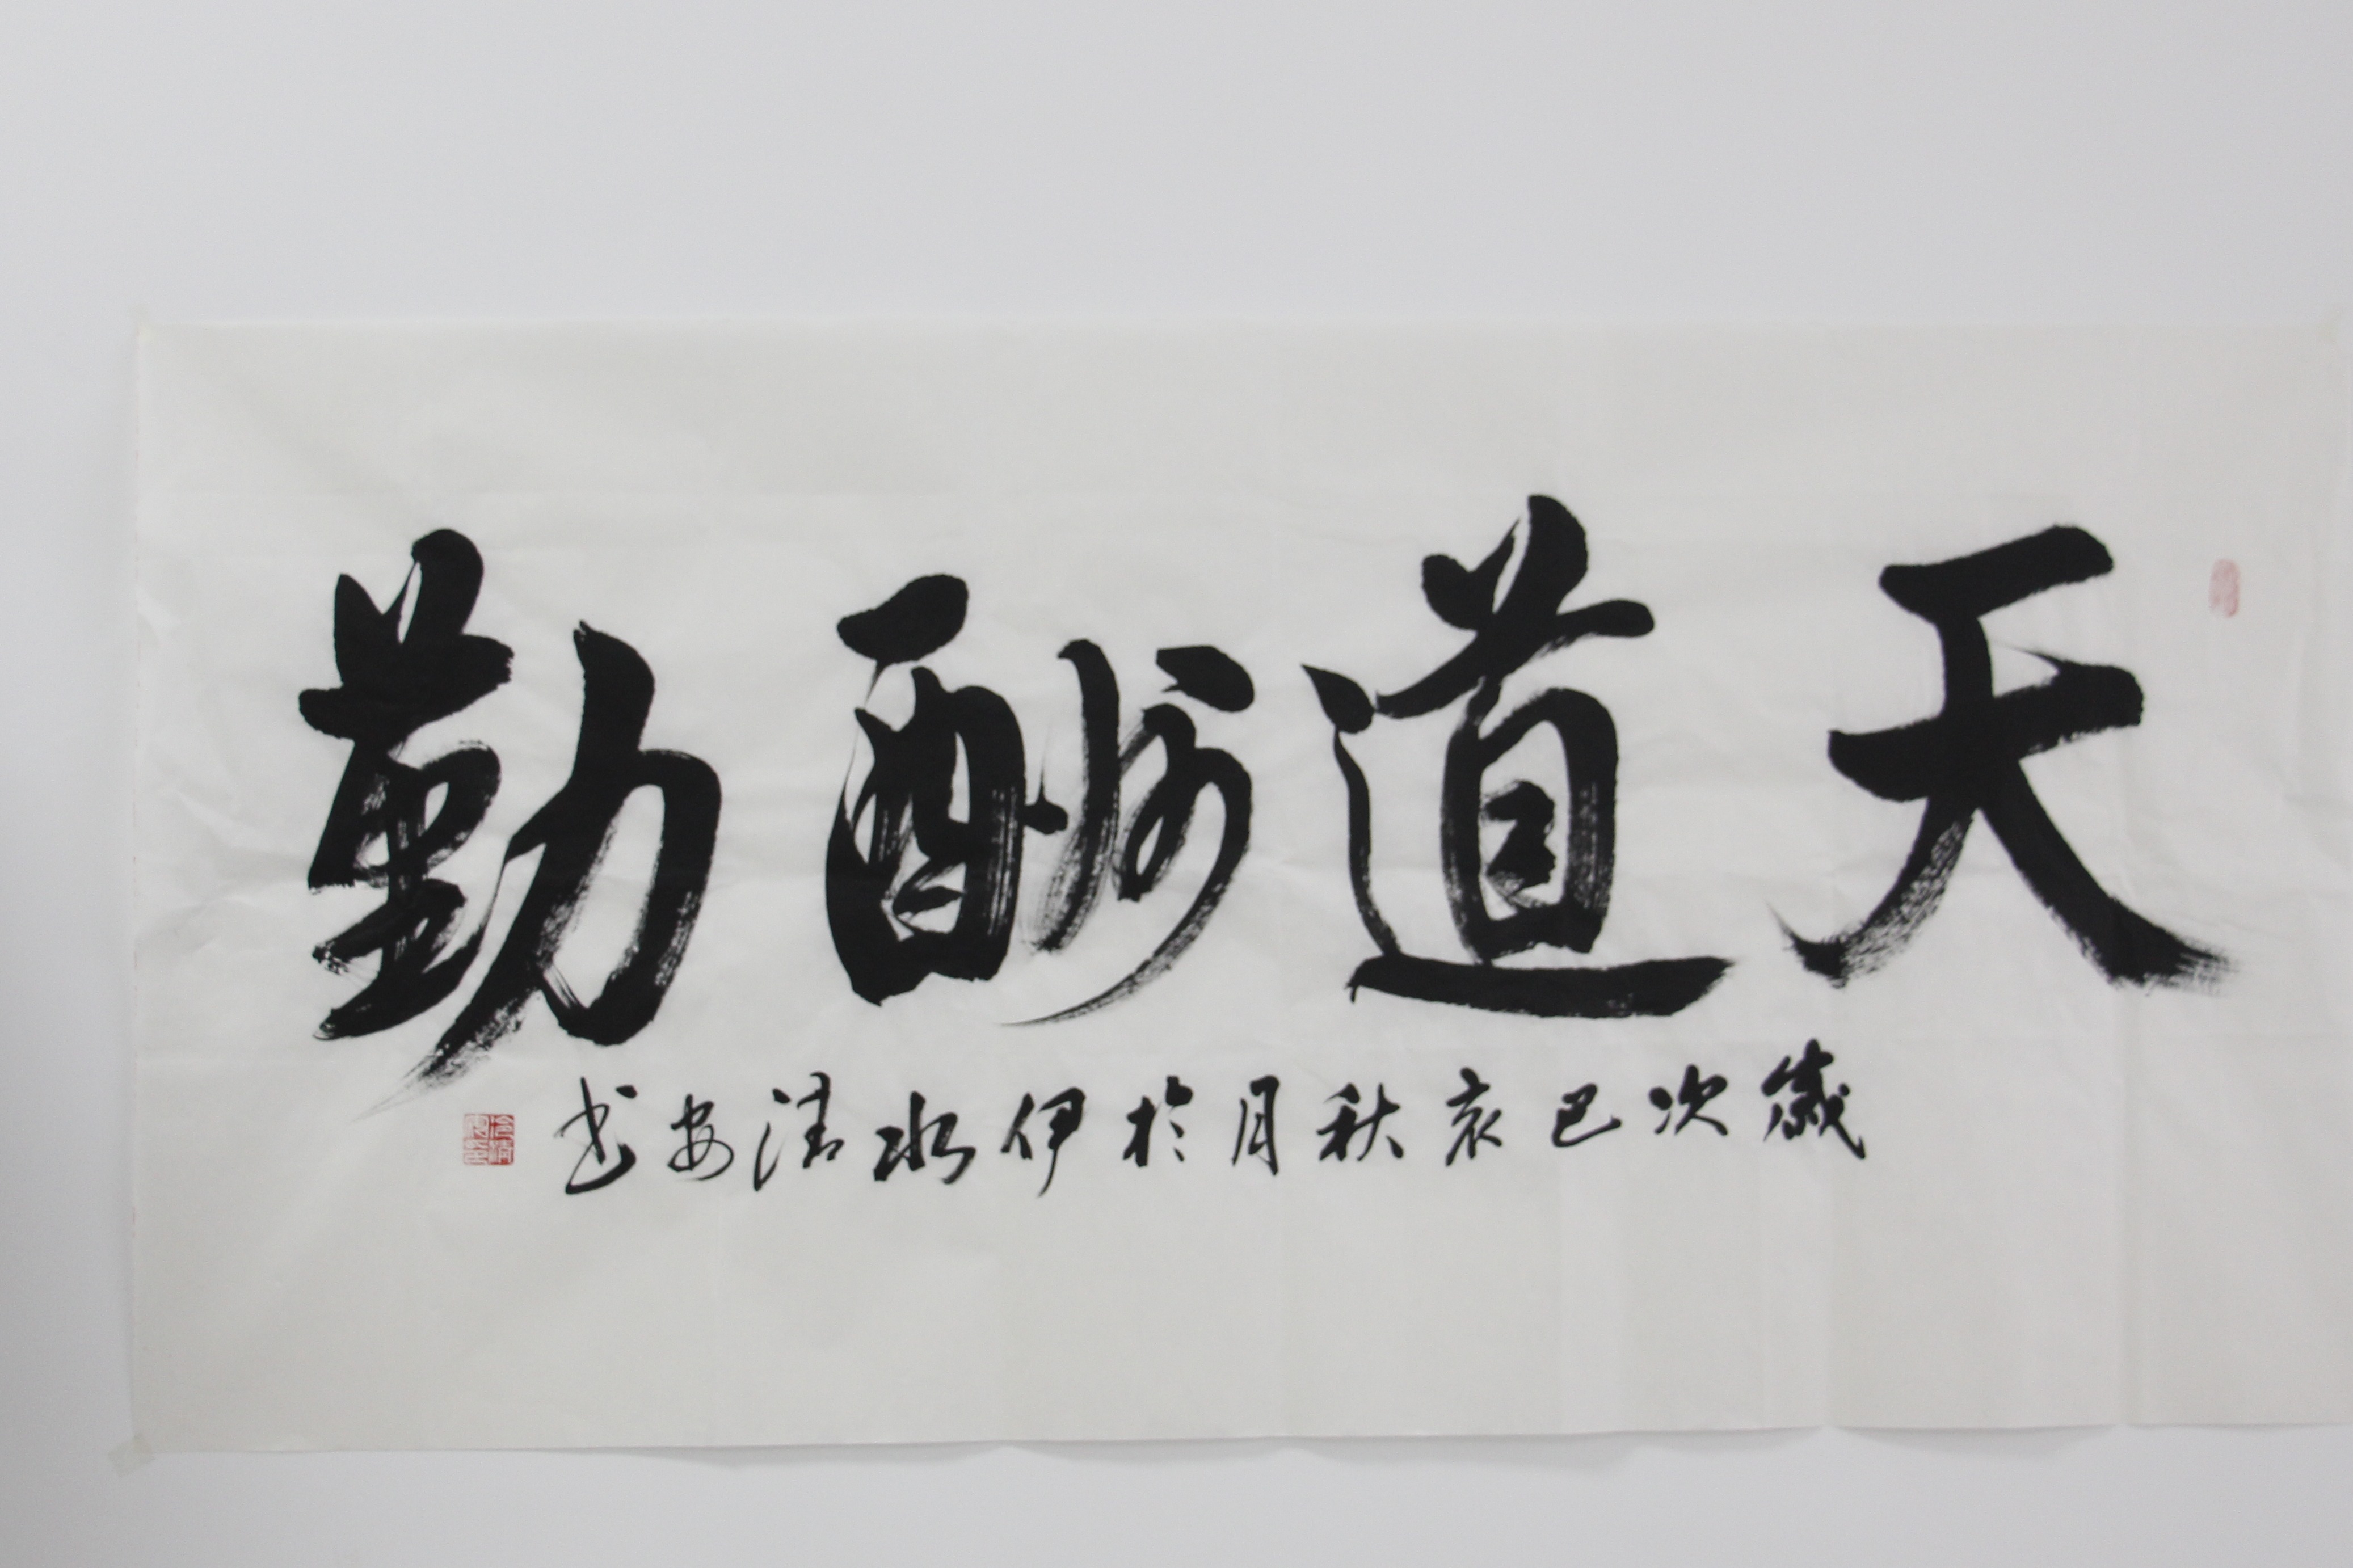 天道酬勤
歲次己亥秋月於伊水清安书